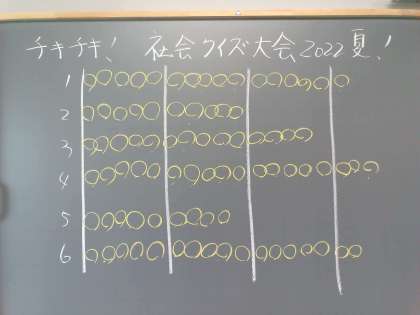 チキチキ! 社会クイズ大会2022夏!
1 ○○○○○ ○○○○○ ○○○○○ ○
2 ○○○○○ ○○○○○
3 ○○○○○ ○○○○○ ○○○○
4 ○○○○○ ○○○○○ ○○○○○ ○○○
5 ○○○○○ ○○○○
6 ○○○○○ ○○○○○ ○○○○○ ○○